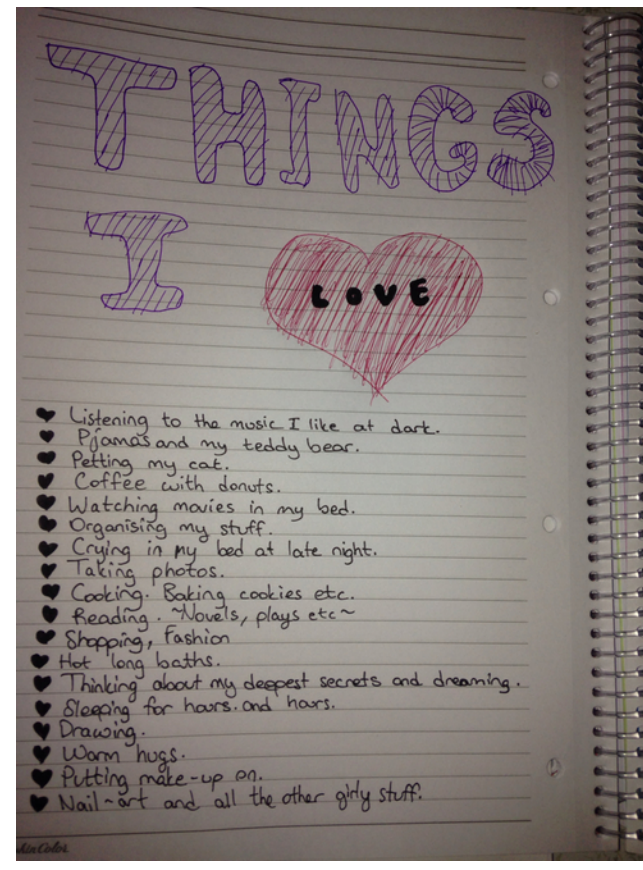 THINGS
I LOVE
Listening to the music I like at dark.
Pjamas and my teddy bear.
Petting my cat.
Coffee with donuts.
Watching movies in my bed.
Organising my stuff.
Crying in my bed at late night.
Taking photos.
Cooking. Baking cookies etc.
Reading. ~Novels, plays etc~
Shopping, Fashion
Hot long baths.
Thinking about my deepest secrets and dreaming.
Sleeping for hours. and hours.
Drawing.
Warm hugs.
Putting make-up on.
Nail-art and all the other girly stuff.